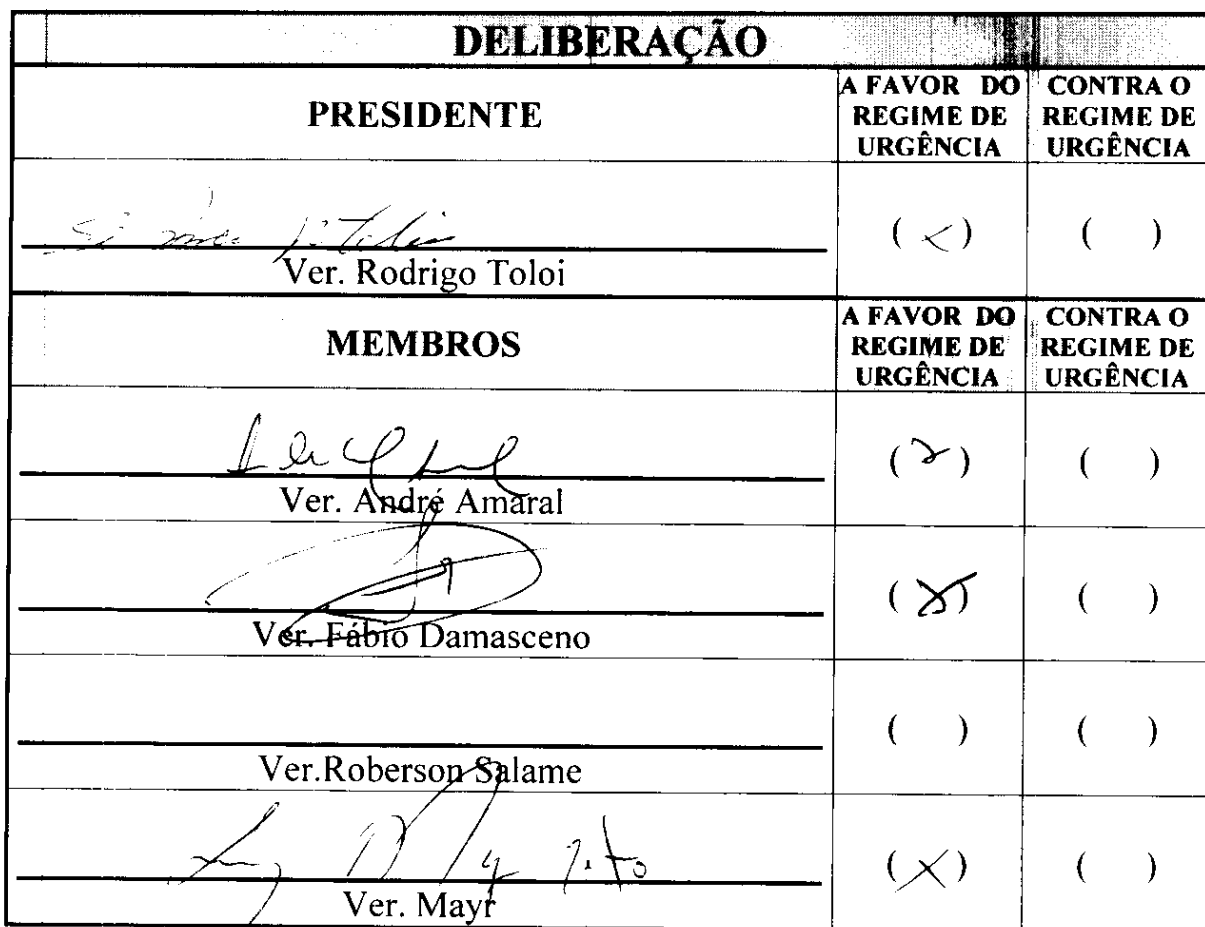 DELIBERAÇÃO
PRESIDENTE
A FAVOR DO REGIME DE URGÊNCIA
CONTRA O REGIME DE URGÊNCIA
( X )
( )
Ver. Rodrigo Toloi
MEMBROS
A FAVOR DO REGIME DE URGÊNCIA
CONTRA O REGIME DE URGÊNCIA
( X )
( )
Ver. André Amaral
( X )
( )
Ver. Fábio Damasceno
( )
( )
Ver.Roberson Salame
( X )
( )
Ver. Mayr